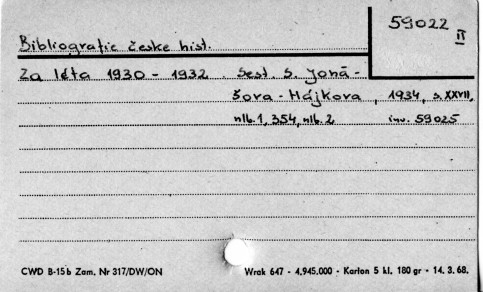 59022
II
Bibliografie české hist.
Za léta 1930 - 1932. Sest. S. Jonā-
šova - Hájkova, 1934, s. XXVII,
nlb. 1, 354, nlb. 2 inv. 59025
CWD B-15b Zam. Nr 317/DW/ON Wrak 647 - 4.945.000 - Karton 5 kl. 180 gr - 14. 3. 68.